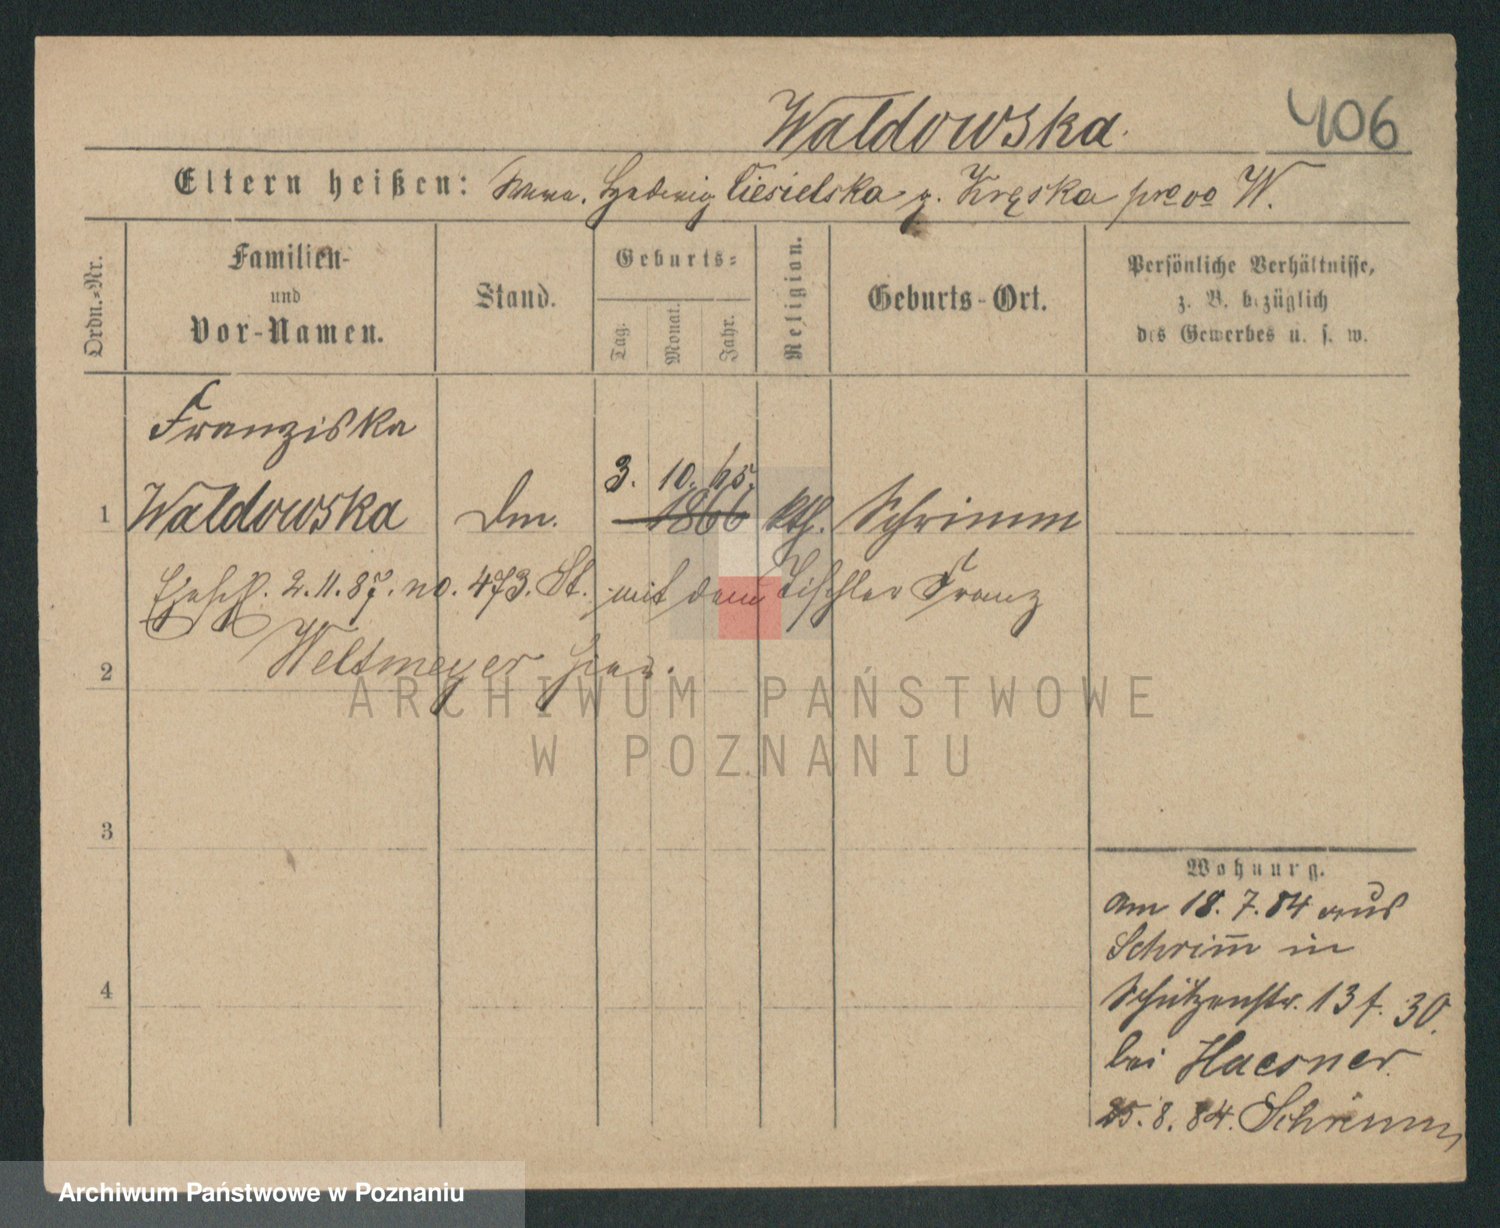 Waldowska.
406
Eltern heißen: Hedwig Ciesielska g. Kręska pro vo W.
Ordn.-Nr.
Familien-
und
Vor-Namen.
Stand.
Geburts-
Tag.
Monat.
Jahr.
Religion.
Geburts-Ort.
Persönliche Verhältnisse,
z. B. bezüglich
des Gewerbes u. s. w.
Franziska
3. 10. 65.
1 Waldowska 1866 kth. Schrimm
Ehesch. 2.11.87. no. 473. St. mit dem Tischler Franz
2 Weltmeyer hier.
3
4
Wohnung.
am 18. 7. 84 aus
Schrim̄ in
Schützenstr. 13 f. 30.
bei Haesner.
25. 8. 84. Schrimm
ARCHIWUM PAŃSTWOWE
W POZNANIU
Archiwum Państwowe w Poznaniu